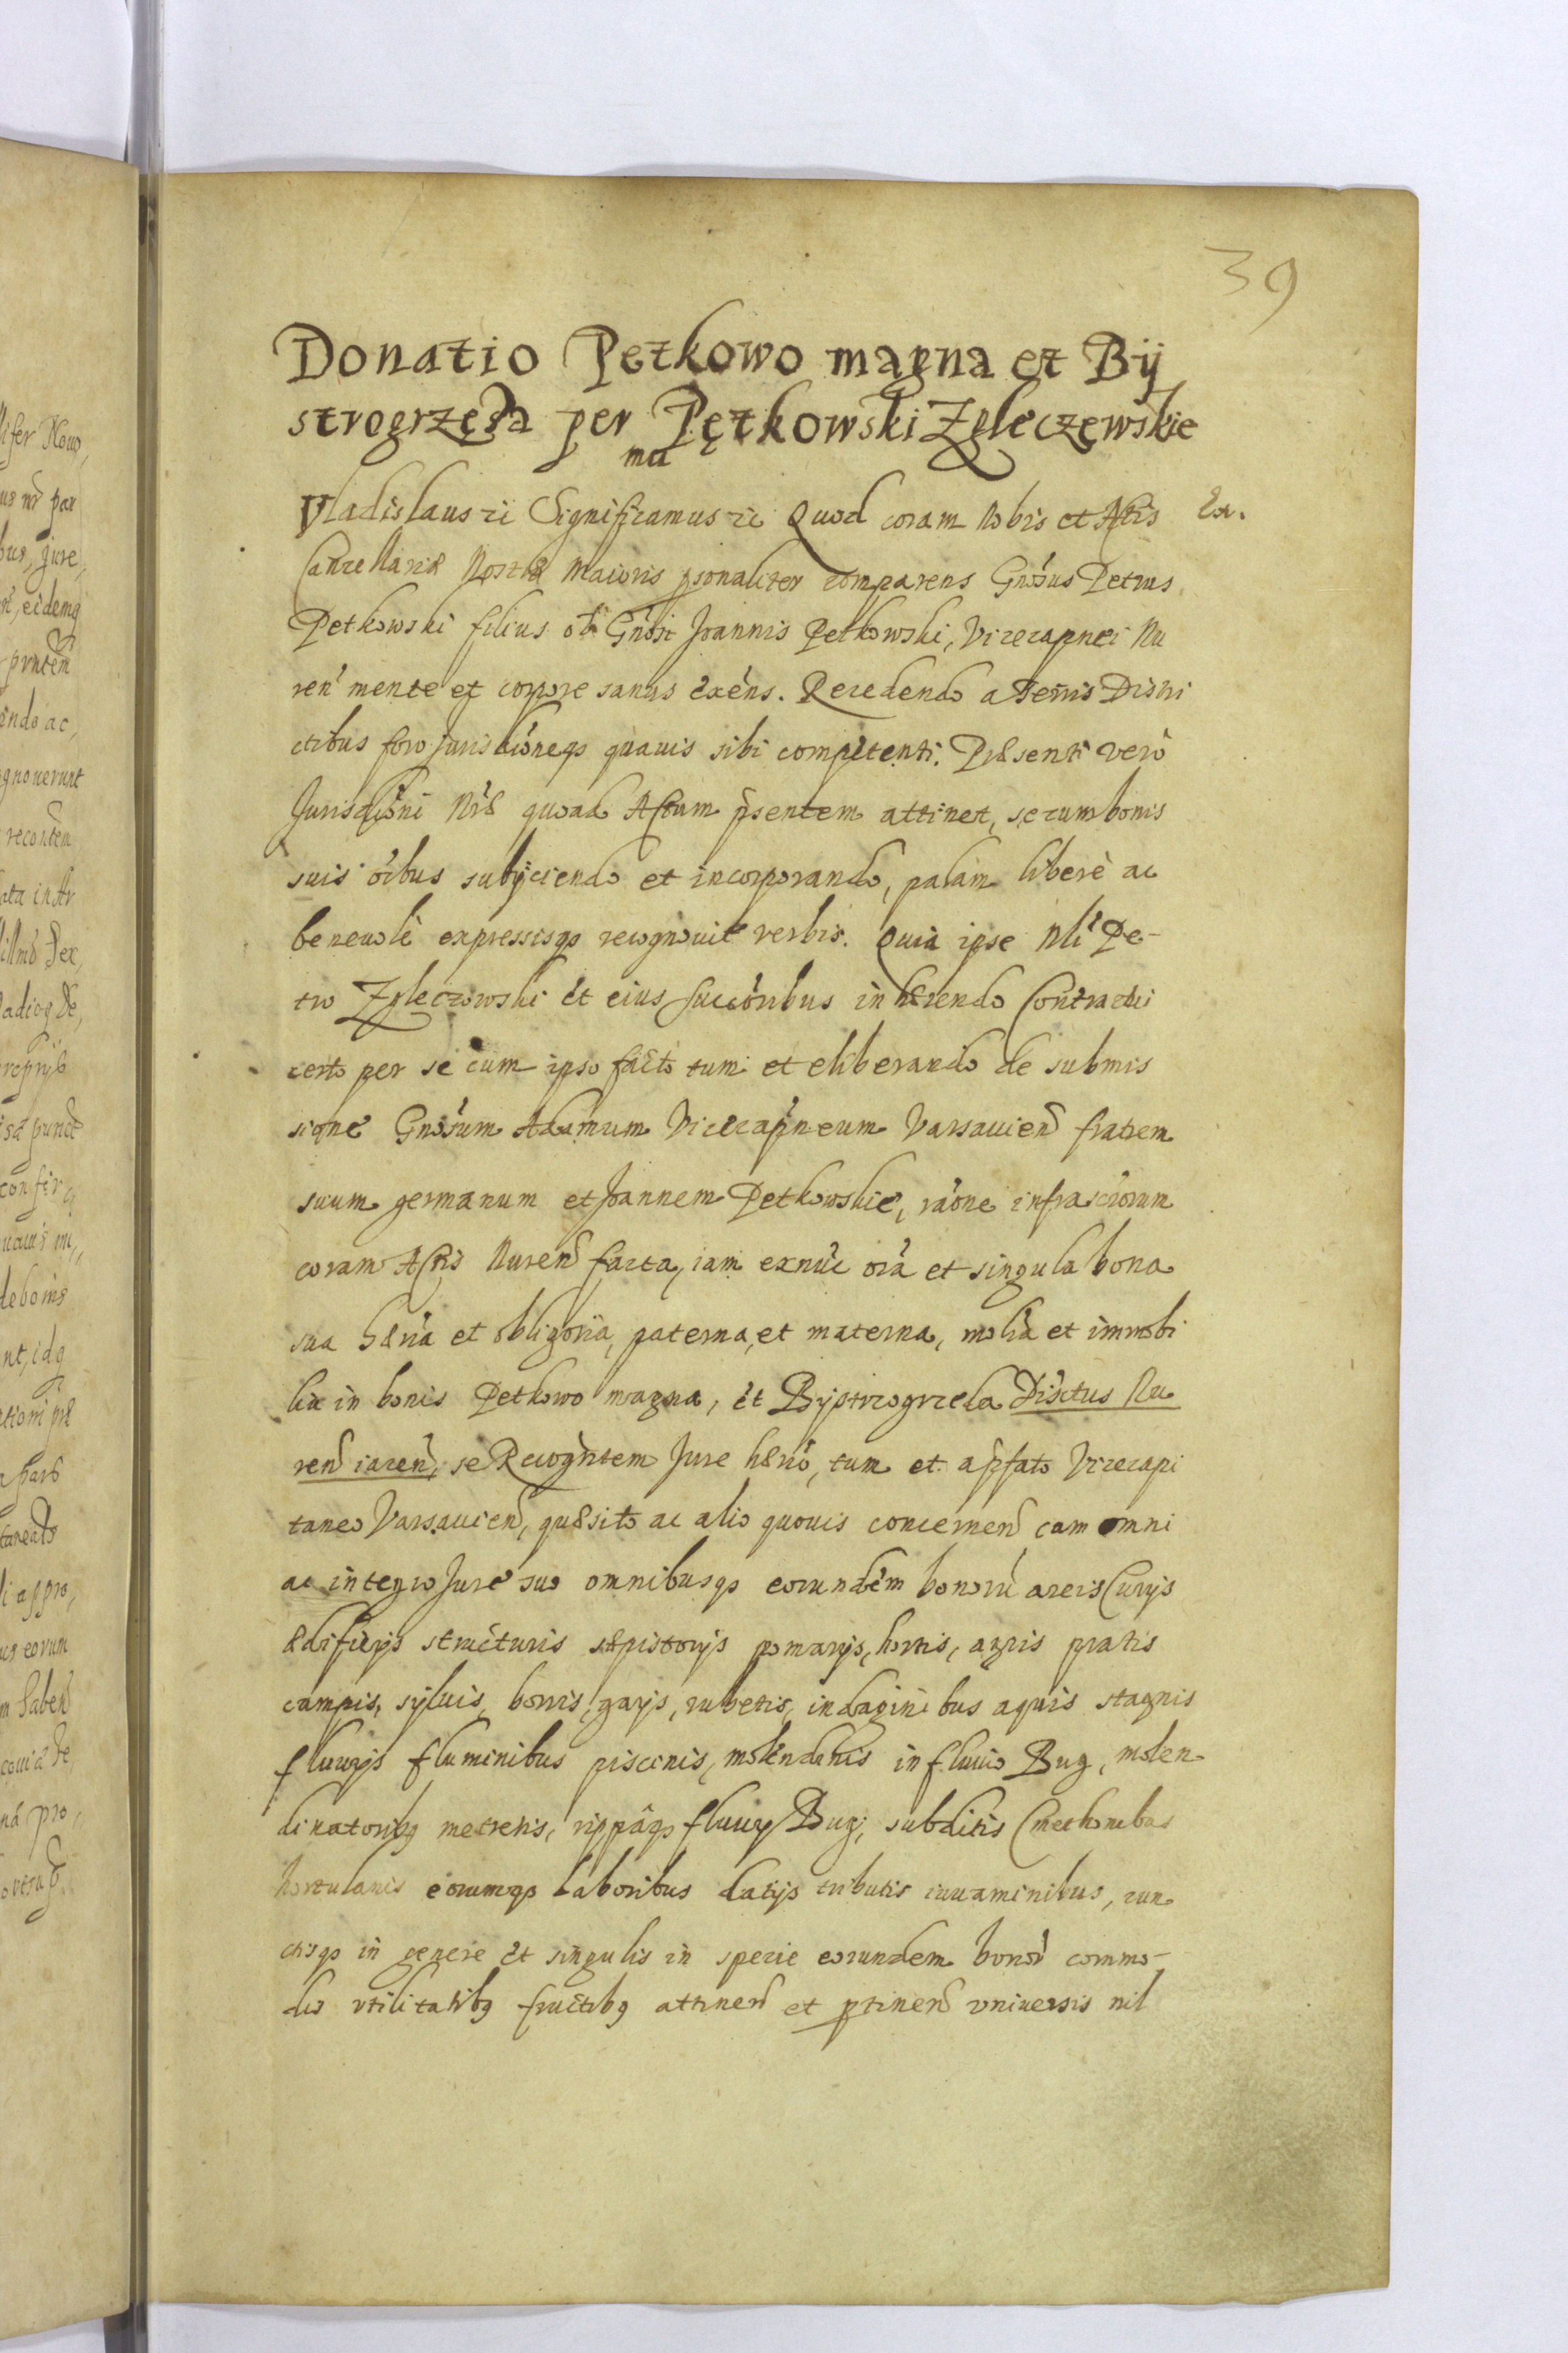 39
Donatio Pętkowo magna et By
strogrzęda per Pętkowski Zgleczęwskie
ma
Vladislaus rc Significamus rc Quod coram Nobis et Actis Ex.
Cancellariæ Nostræ Maioris psonaliter comparens Gnosus Petrus
Petkowski filius oli Gnosi Joannis Petkowski, Vicecapnei Nu
ren mente et corpore sanus exens. Recedendo a Terris Distri
ctibus foro Jurisdiõneqз quauis sibi competenti. Præsenti vero
Jurisdiõni Nræ quoad Actum psentem attinet, se cum bonis
suis oibus subijciendo et incorporando, palam liberè ac
beneuolè expressisqз recognouit verbis. Quia ipse Nli Pe-
tro Zgleczowski et eius Succoribus inhærendo Contractui
certo per se cum ipso facto tum et eliberando de submis
sione Gnosum Adamum Vicecapneum Varsauien fratrem
suum germanum et Joannem Petkowskie, raone infrascrorum
coram Actis Nuren facta, iam exnuc oia et singula bona
sua hæria et obligoria, paterna, et materna, molia et immobi
lia in bonis Petkowo magna, et Bystrzogrzeda Disctus Nu
ren iacen, se Recognтem Jure hærio, tum et a pfato Vicecapi
taneo Varsauien, quæsito ac alio quouis concernen cum omni
ac integro Jure suo omnibusqз eorundem bonoru areis Curijs
ædificijs structuris sæpistorijs pomarijs, hortis, agris pratis
campis, syluis, borris, gajs, rubetis, indaginibus aquis stagnis
fluuijs fluminibus piscinis, molendinis in fluuio Bug, molen
dinatoribg metretis, rippaqз fluuij Bug, subditis Cmethonibus
hortulanis eorumqз laboribus datijs tributis iuuaminibus, cun
ctisqз in genere et singulis in specie eorundem bonor commo-
dis vtilitatibg fructibg attinen et ptinen vniuersis nil